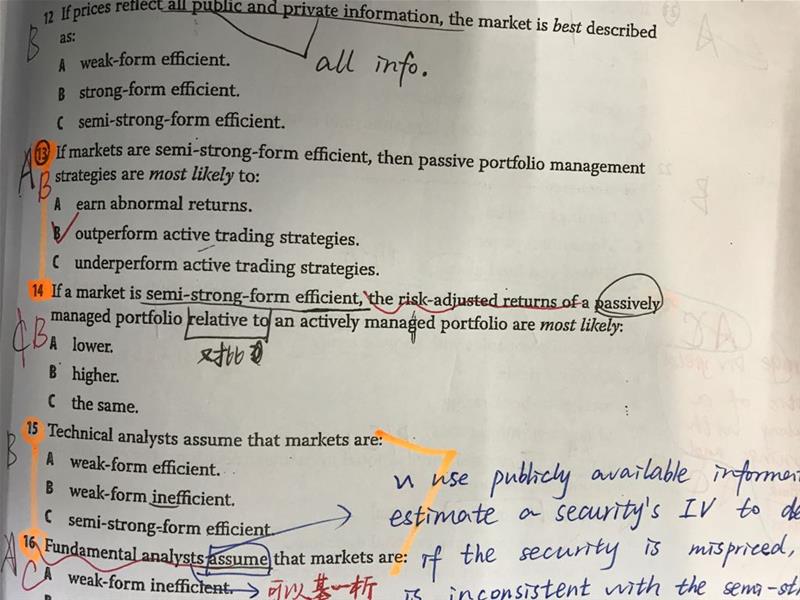 12 If prices reflect all public and private information, the market is best described
as:
B
A weak-form efficient.
all info.
B strong-form efficient.
C semi-strong-form efficient.
13 If markets are semi-strong-form efficient, then passive portfolio management
A B
strategies are most likely to:
A earn abnormal returns.
B outperform active trading strategies.
C underperform active trading strategies.
14 If a market is semi-strong-form efficient, the risk-adjusted returns of a passively
managed portfolio relative to an actively managed portfolio are most likely:
C B
A lower.
对比
B higher.
C the same.
15 Technical analysts assume that markets are:
B
A weak-form efficient.
B weak-form inefficient.
C semi-strong-form efficient.
use publicly available
estimate a security's IV to
16 Fundamental analysts assume that markets are:
if the security is mispriced,
A C
A weak-form inefficient.
可以基一析
is inconsistent with the